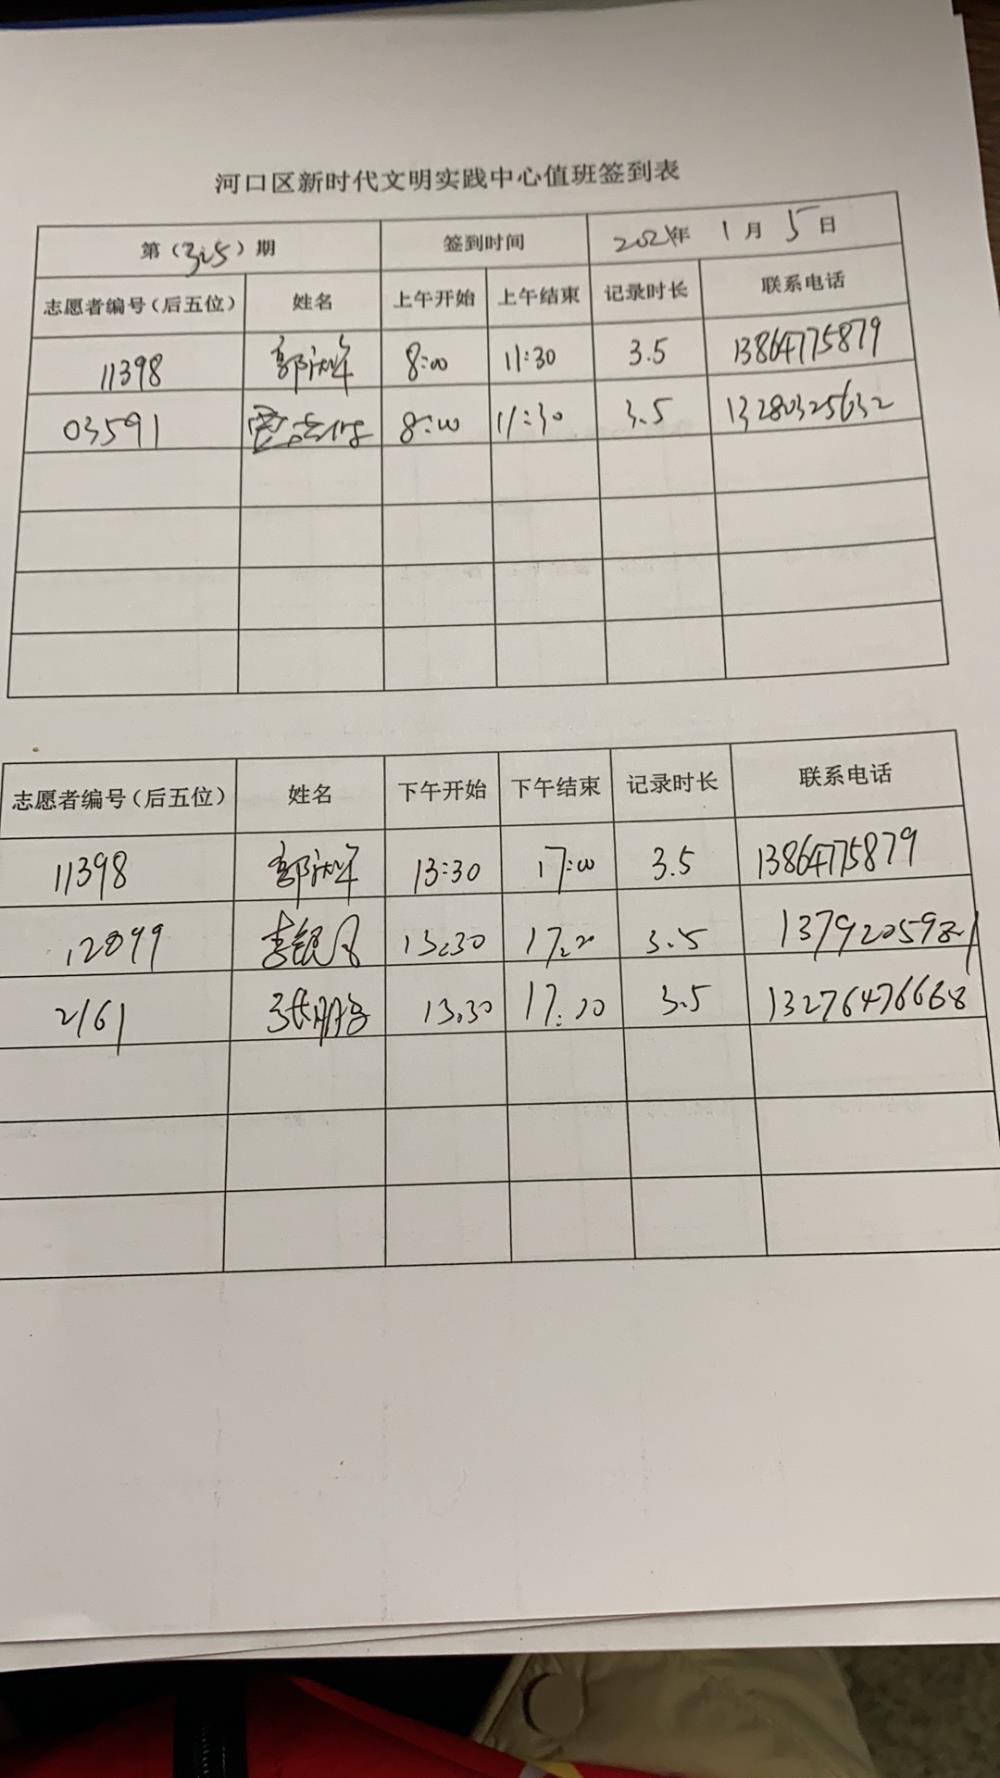 河口区新时代文明实践中心值班签到表
第（325）期 签到时间 2021年 1月 5日
志愿者编号（后五位） 姓名 上午开始 上午结束 记录时长 联系电话
11398 8:00 11:30 3.5 13864775879
03591 8:00 11:30 3.5 13280325632
志愿者编号（后五位） 姓名 下午开始 下午结束 记录时长 联系电话
11398 13:30 17:00 3.5 13864775879
12899 李银月 13:30 3.5
2161 13:30 3.5 13276476668